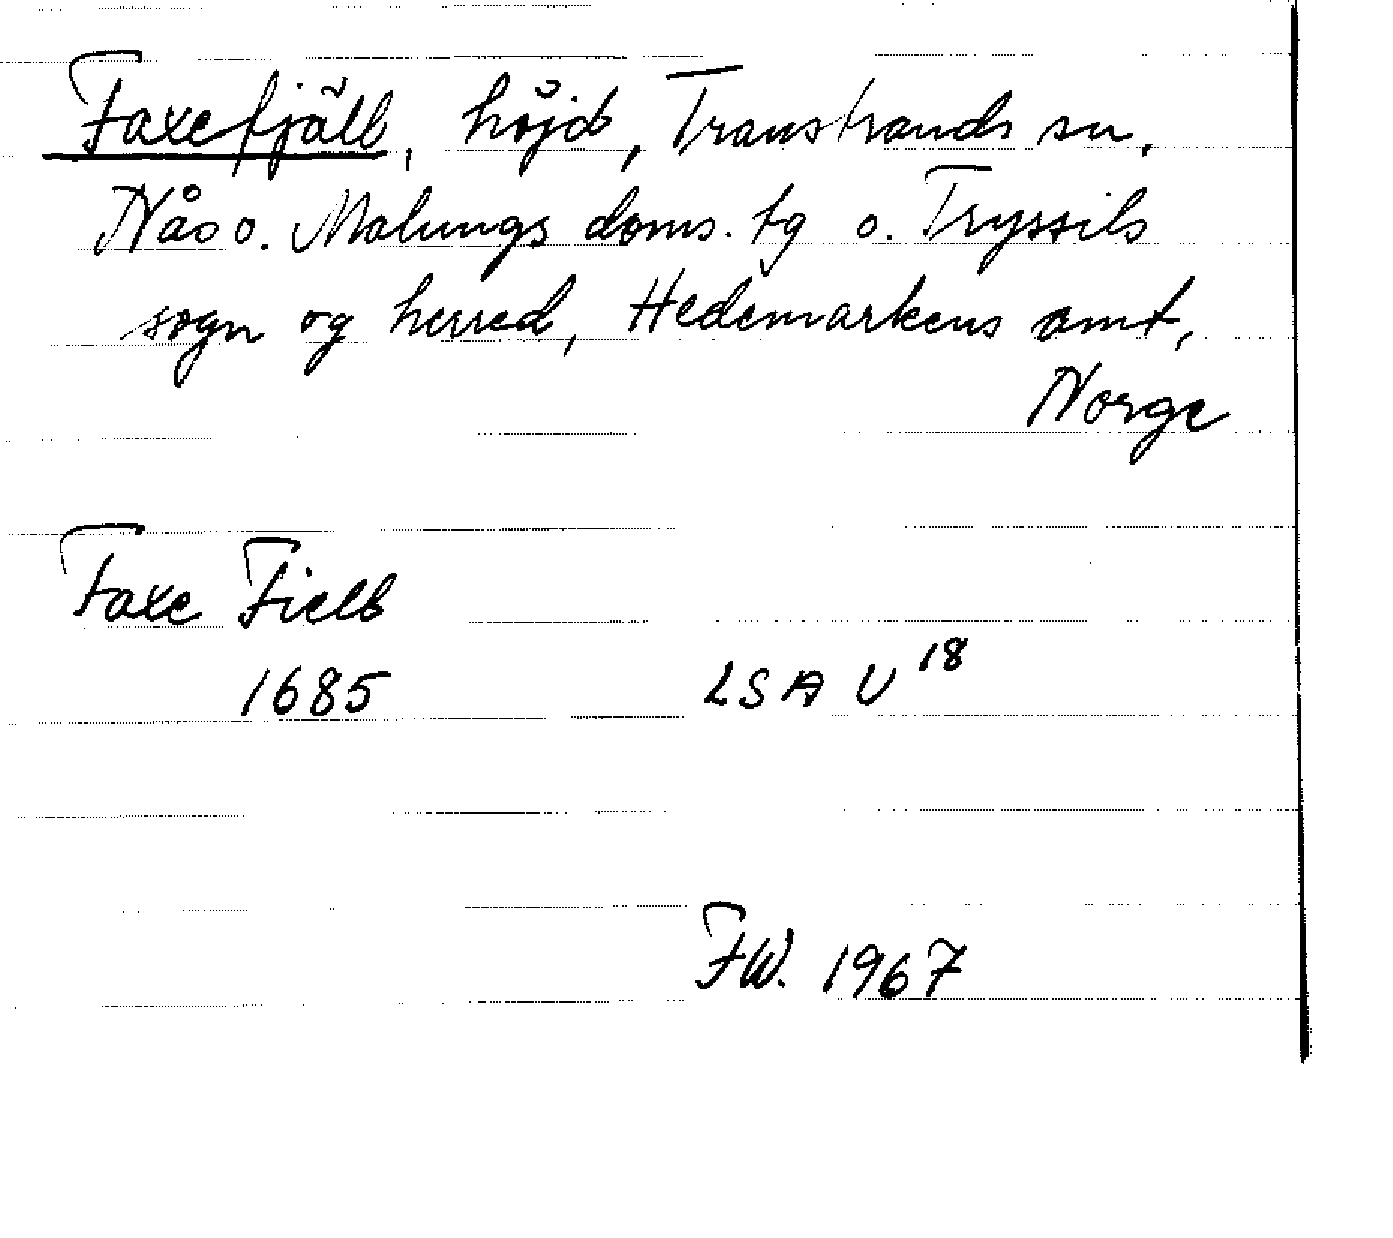 Faxefjäll, höjd, Transtrands sn,
Nås o. Malungs doms. tg o. Tryssils
sogn og herred, Hedemarkens amt,
Norge
Faxe Fiell
1685 LSA U 18
FW. 1967